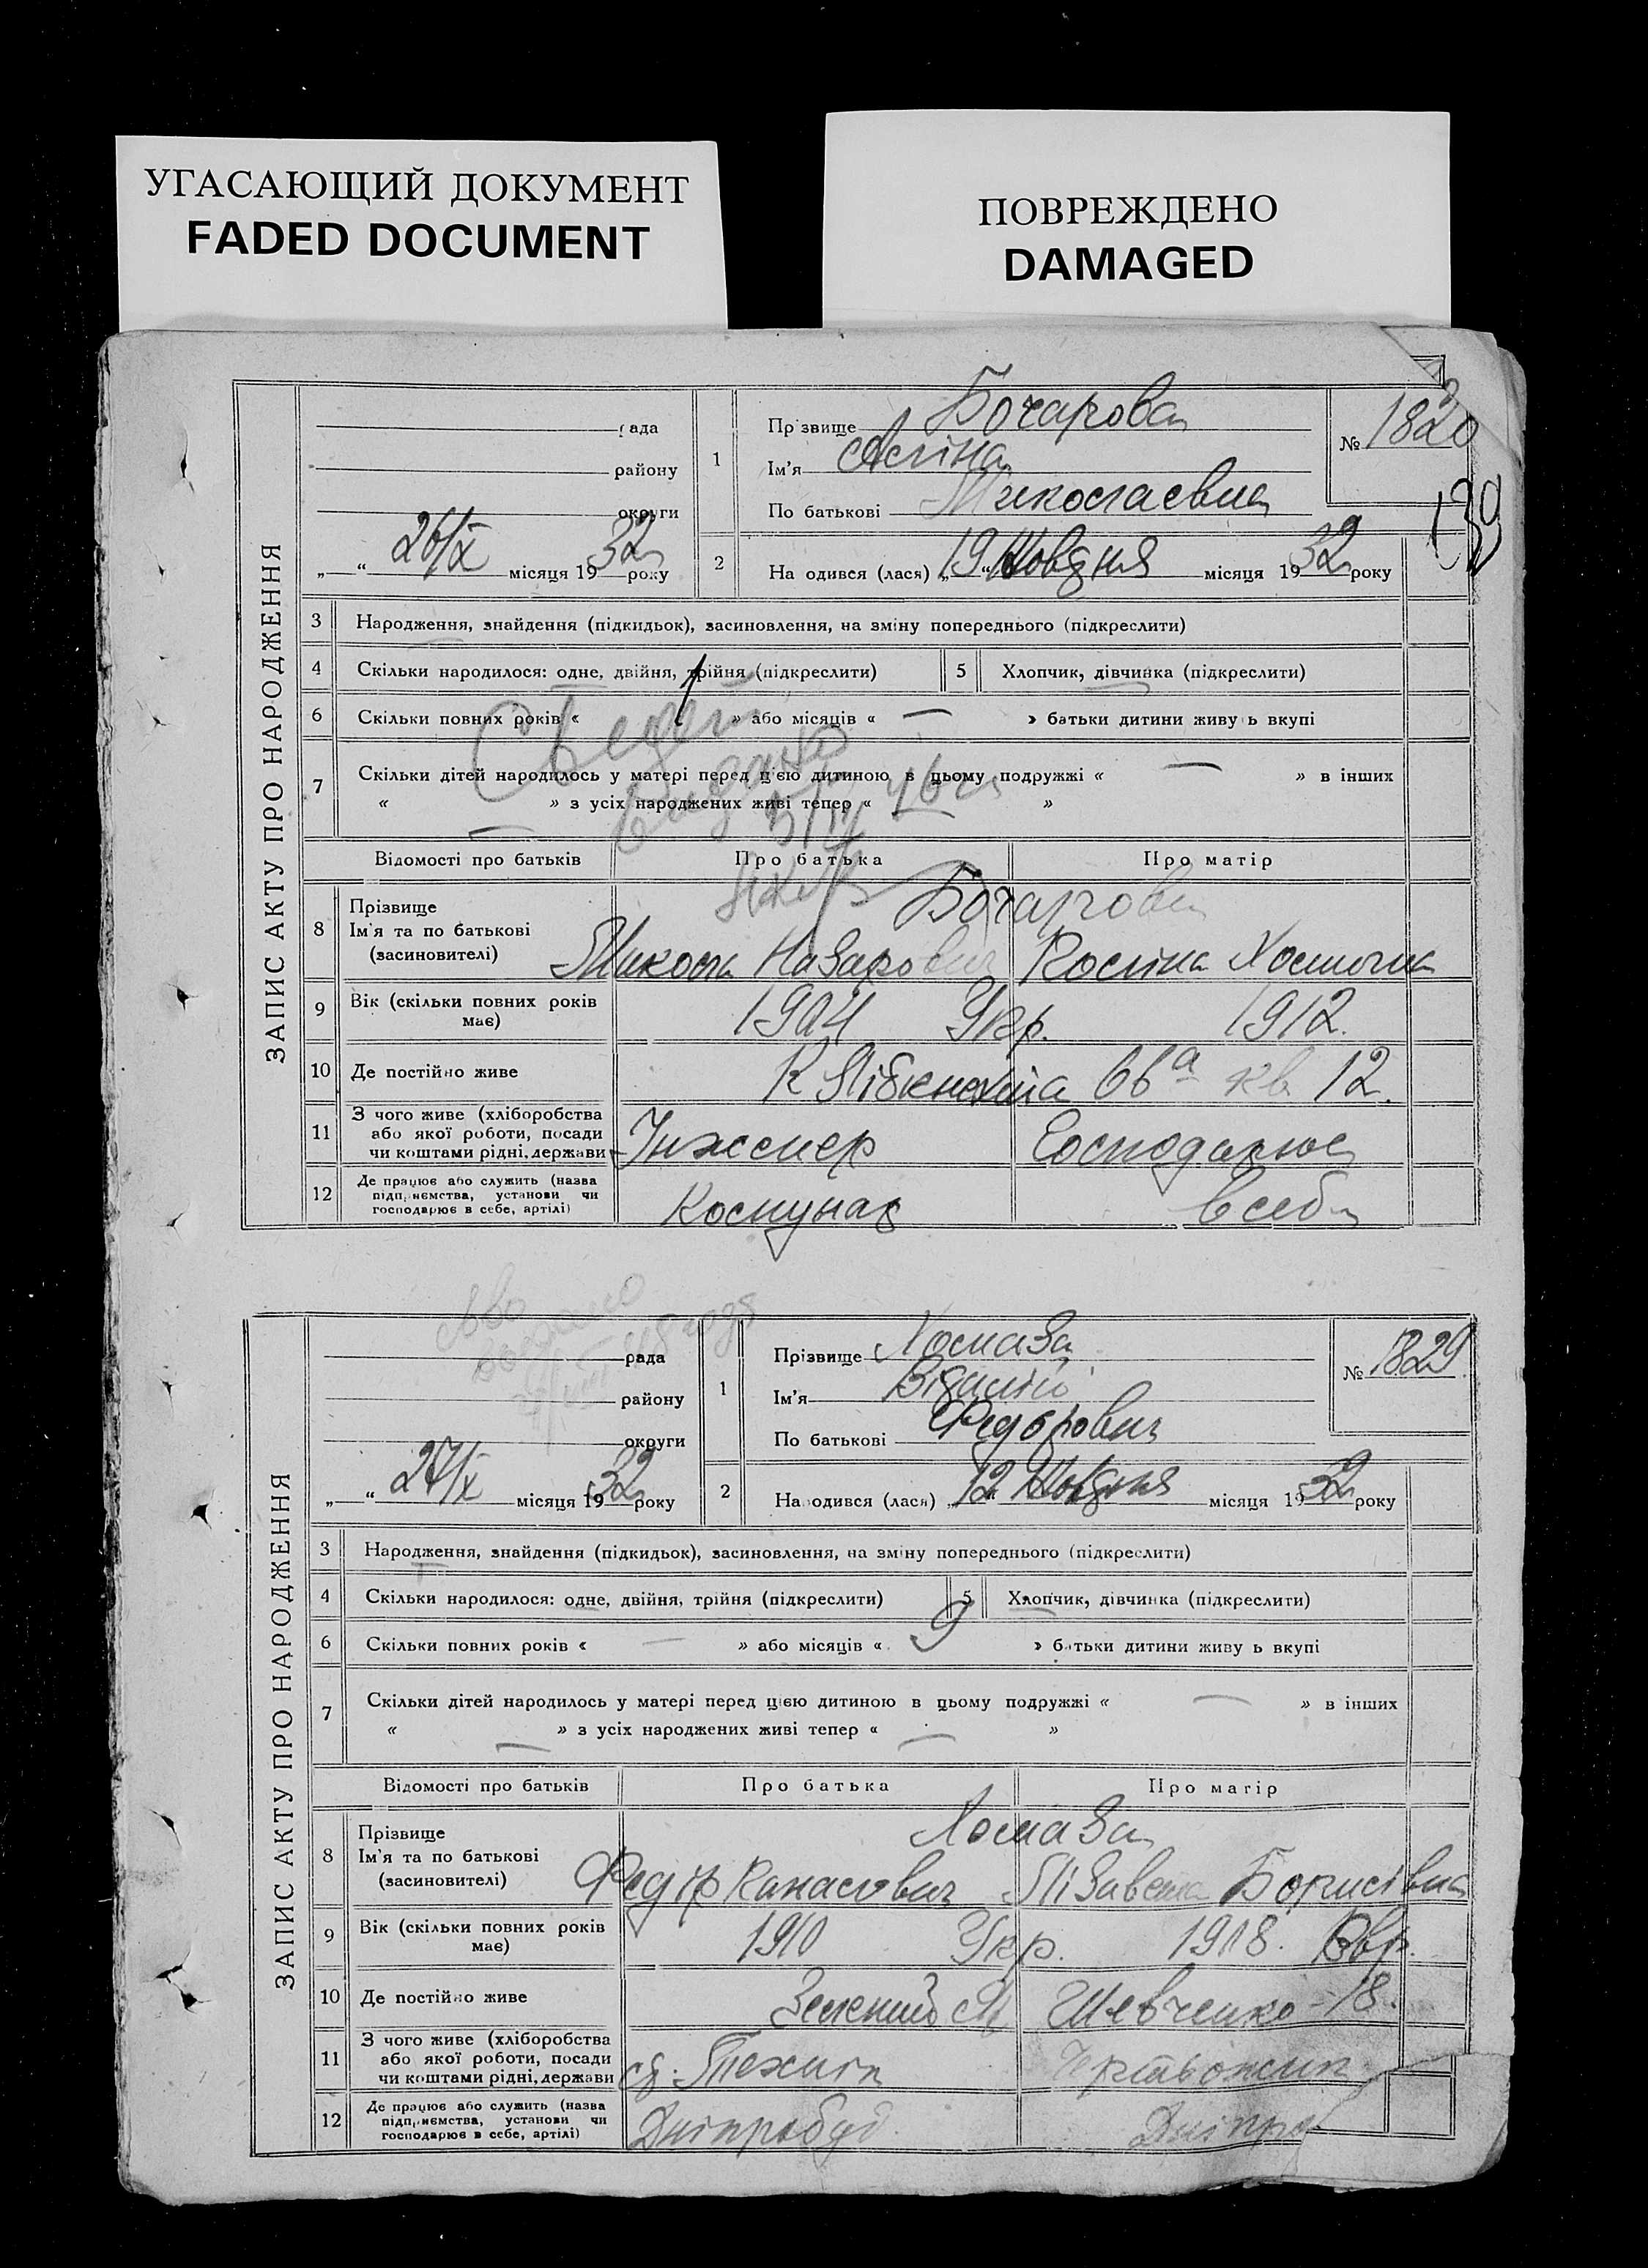 УГАСАЮЩИЙ ДОКУМЕНТ
FADED DOCUMENT
ПОВРЕЖДЕНО
DAMAGED
ЗАПИС АКТУ ПРО НАРОДЖЕННЯ
рада
району
округи
„ “ 26/X місяця 1932 року
1
Прізвище Бочарова
Ім'я Аліна
По батькові Миколаевна
№ 1820
139
2
На одився (лася) „19“ Жовдня місяця 1932 року
3 Народження, знайдення (підкидьок), засиновлення, на зміну попереднього (підкреслити)
4 Скільки народилося: одне, двійня, трійня (підкреслити)
5 Хлопчик, дівчинка (підкреслити)
6 Скільки повних років « 1 » або місяців « — » батьки дитини живу ь вкупі
7 Скільки дітей народилось у матері перед цією дитиною в цьому подружжі « — » в інших
« — » з усіх народжених живі тепер « — »
видано
Відомості про батьків
Про батька
Про матір
8 Прізвище
Ім'я та по батькові
(засновителі)
Бочарова
Микола Назарович
9 Вік (скільки повних років
має)
1904 Укр. 1912.
10 Де постійно живе
кв 12.
11 З чого живе (хліборобства
або якої роботи, посади
чи коштами рідні, держави
Інженер
Господарює
12 Де працює або служить (назва
підп, иємства, установи чи
господарює в себе, артілі)
Комунар
в себе
ЗАПИС АКТУ ПРО НАРОДЖЕННЯ
рада
району
округи
„ “ 27/X місяця 1932 року
1
Прізвище Хомаза
Ім'я Віталій
По батькові Федорович
№ 1829
2
На одився (лася) „12“ Жовдня місяця 1932 року
3 Народження, знайдення (підкидьок), засиновлення, на зміну попереднього (підкреслити)
4 Скільки народилося: одне, двійня, трійня (підкреслити)
5 Хлопчик, дівчинка (підкреслити)
6 Скільки повних років « — » або місяців « 9 » батьки дитини живу ь вкупі
7 Скільки дітей народилось у матері перед цією дитиною в цьому подружжі « — » в інших
« — » з усіх народжених живі тепер « — »
Відомості про батьків
Про батька
Про матір
8 Прізвище
Ім'я та по батькові
(засиновителі)
Хомаза
Федір Панасович Лізавета Борисівна
9 Вік (скільки повних років
має)
1910 Укр. 1918. Євр.
10 Де постійно живе
Зелений Шевченко 18.
11 З чого живе (хліборобства
або якої роботи, посади
чи коштами рідні, держави
Технік
12 Де працює або служить (назва
підп, иємства, установи чи
господарює в себе, артілі)
Дніпробуд
Дніпро